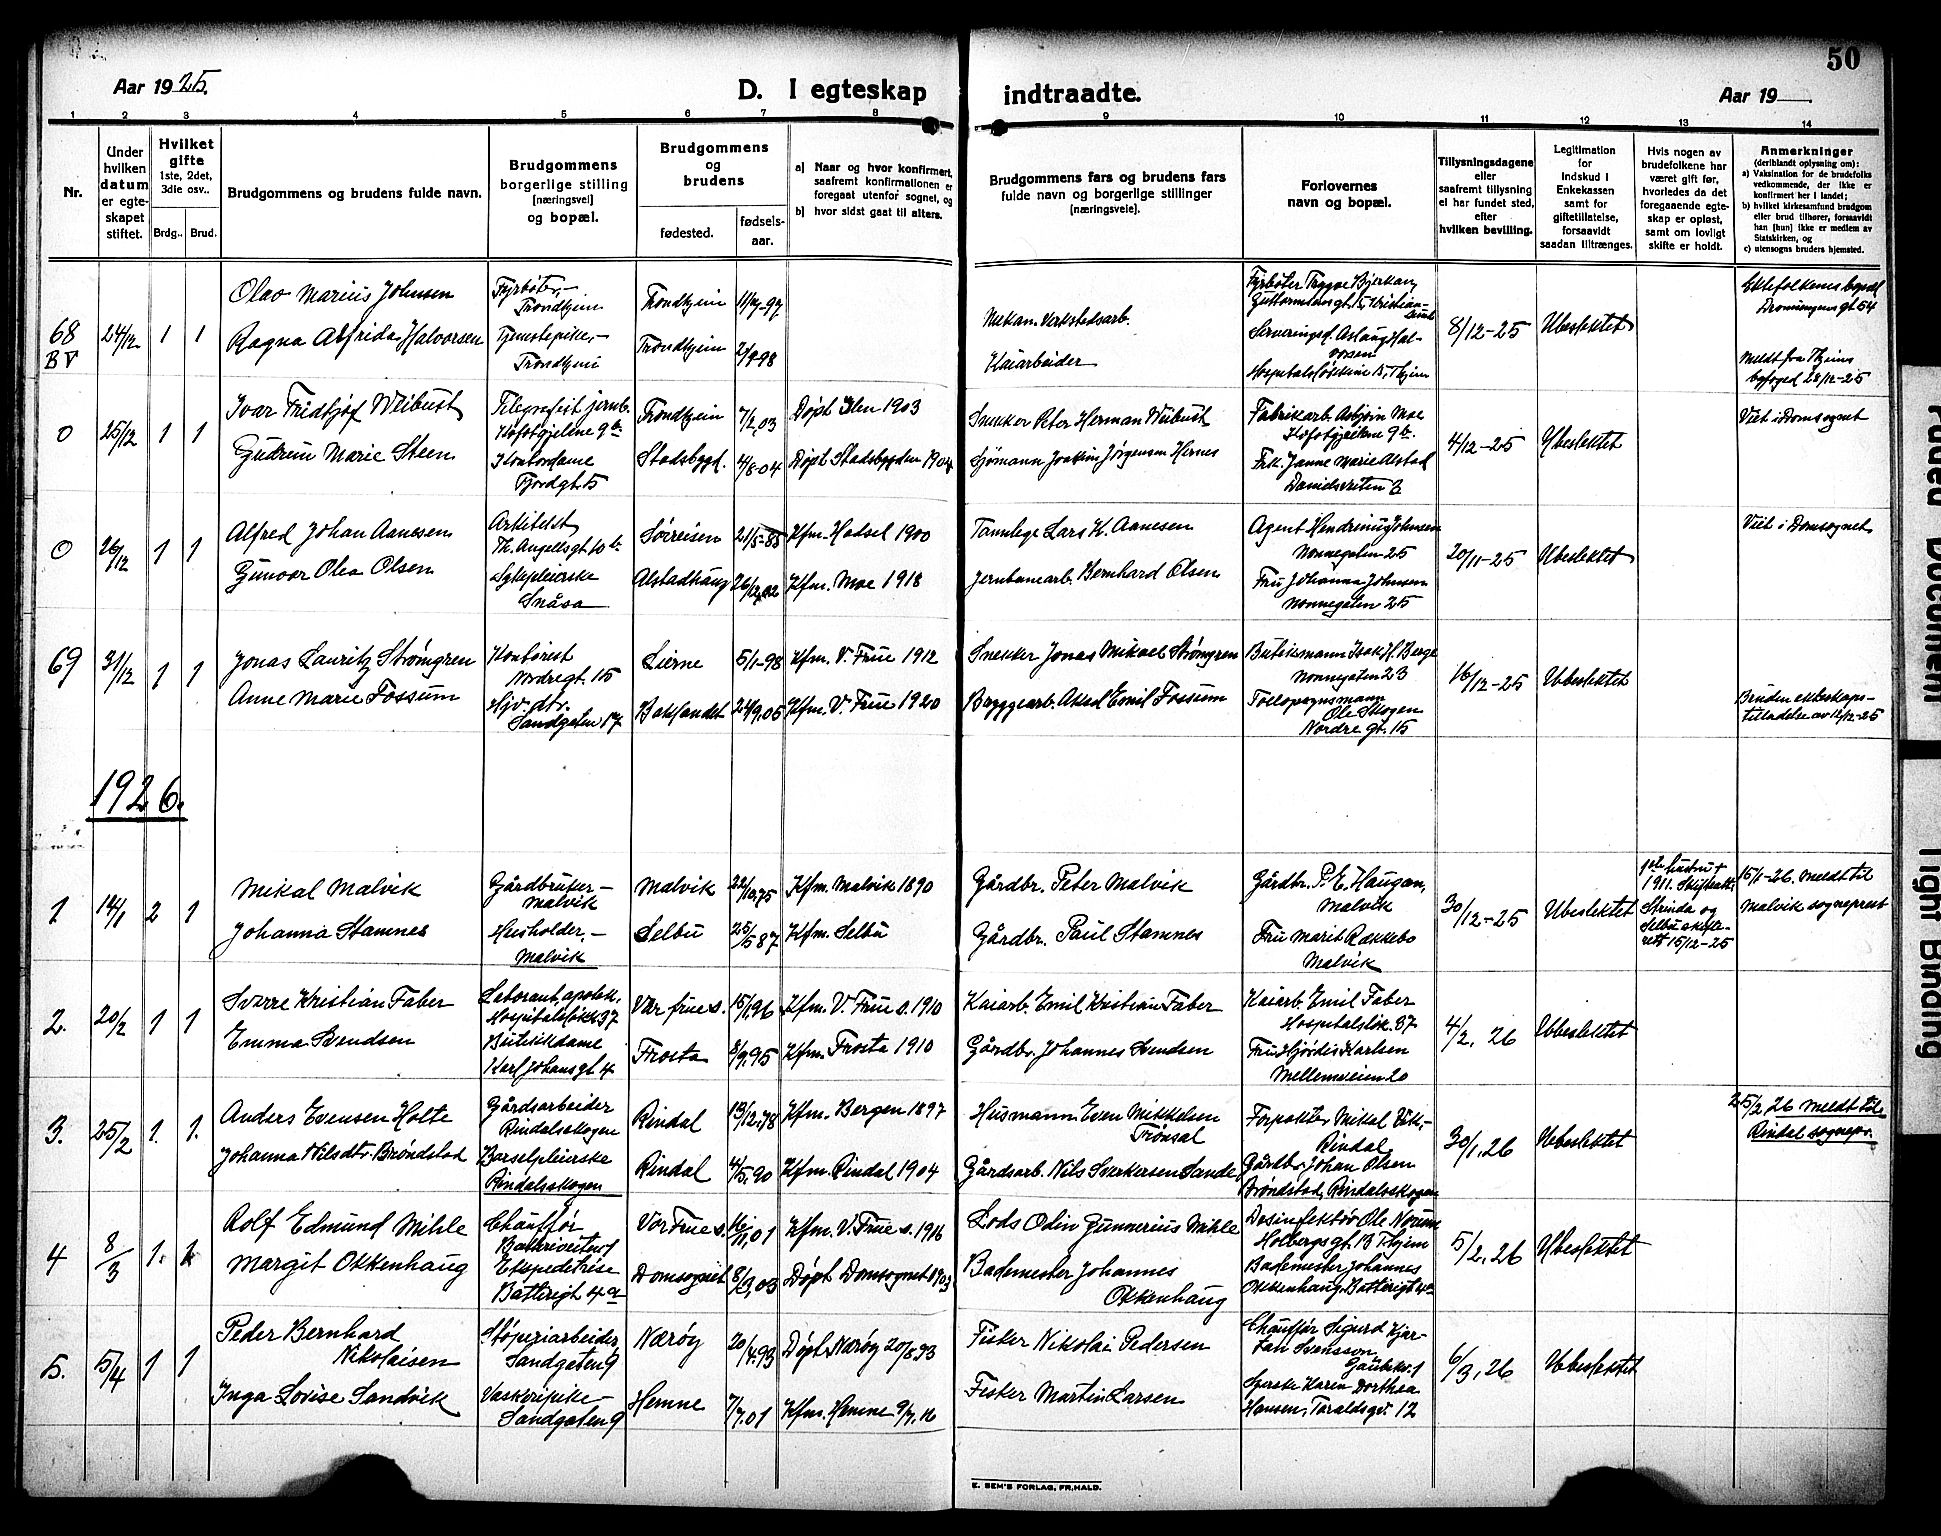 50
Aar 1925.
D. I egteskap indtraadte.
Aar 19
1 2 3 4 5 6 7 8 9 10 11 12 13 14
Nr.
Under hvilken datum er egteskapet stiftet.
Hvilket gifte 1ste, 2det, 3die osv..
Brdg..
Brud.
Brudgommens og brudens fulde navn.
Brudgommens borgerlige stilling (næringsvei) og bopæl.
Brudgommens og brudens
fødested.
fødselsaar.
a) Naar og hvor konfirmert, saafremt konfirmationen er foregaat utenfor sognet, og
b) hvor sidst gaat til alters.
Brudgommens fars og brudens fars fulde navn og borgerlige stillinger (næringsveie).
Forlovernes navn og bopæl.
Tillysningsdagene eller saafremt tillysning ei har fundet sted, efter hvilken bevilling.
Legitimation for indskud i Enkekassen samt for giftetillatelse, forsaavidt saadan tiltrænges.
Hvis nogen av brudefolkene har været gift før, hvorledes da det foregaaende egteskap er opløst, samt om lovligt skifte er holdt.
Anmerkninger (deriblandt oplysning om):
a) Vaksination for de brudefolks vedkommende, der ikke er konfirmert her i landet;
b) hvilket kirkesamfund brudgom eller brud tilhører, forsaavidt han (hun) ikke er medlem av Statskirken, og
c) utensogns bruders hjemsted.
68 BV
24/12
1 1
Olav Marius Johnsen
Fyrbøter,-
Trondhjem
Trondhjem
Ragna Alfrida Halvorsen
Tjenestepike,-
Trondhjem
Trondhjem
Mekan. Verkstedsarb.
Kaiarbeider
Fyrbøter Trygve Bjerkan
Hospitalsløkken 15, Thjem
8/12-25
Ubeslektet
Ektefolkenes bopæl
Dronningens gt. 54
Meldt fra Thjems
byfoged 28/12-25
0
25/12
1 1
Ivar Fridtjof Wibust
Telegrafist jernb.
Trondhjem
7/2,03
Døpt Ilen 1903
Gudrun Marie Steen
Kontordame
Fjordgt. 5
Stadsbygd.
4/8-04
Døpt Stadsbygden 1904
Snekker Peter Herman Wibust
Sjømann Joakim Jørgensen Hernes
Fabrikarb. Asbjørn Moe
Frk. Janne Marie Alstad
4/12-25
Ubeslektet
Viet i Domsognet
0
26/12
1 1
Alfred Johan Aanesen
Arkitekt
Th. Angellsgt 10 b
Sørreisen
21/5-85
Kfm. Hadsel 1900
Gunvor Olea Olsen
Sykepleierske
Snåsa
Alstadhaug
26/12,02
Kfm. Moe 1918
Tannlege Lars K. Aanesen
Jernbanearb. Bernhard Olsen
Agent Hendrining Johnsen
Nonnegaten 25
Fru Johanna Johnsen
Nonnegaten 25
20/11-25
Ubeslektet
Viet i Domsognet
69
31/12
1 1
Jonas Lauritz Strømgren
Kontorist
Nordregt. 15
Lierne
5/1-98
Kfm. V. Frue 1912
Anne Marie Fossum
Hjv. dtr.
Sandgaten 17
Baklandet
24/9,05
Kfm. V. Frue 1920
Snekker Jonas Mikael Strømgren
Bryggearb. Aksel Emil Fossum
Butiksmann Isak H. Berge
Nonnegaten 23
Tollopsynsmann
Ole Skogen
Nordre gt. 15
16/12-25
Ubeslektet
Bruden ekteskaps-
tilladelse av 12/12-25
1926.
1
14/1
2 1
Mikal Malvik
Gårdbruker-
Malvik
Malvik
22/10,75
Kfm. Malvik 1890
Johanna Stamnes
Husholder,-
Malvik
Selbu
25/5 87
Kfm. Selbu
Gårdbr. Peter Malvik
Gårdbr. Paul Stamnes
Gårdbr. P. E. Haugan,
Malvik
Fru Marit Rækkebo
Malvik
30/12-25
Ubeslektet
1ste hustru †
1911. Skifteatt.
Strinda og
Selbu skifte-
rett 15/12-25
15/1-26. Meldt til
Malvik sogneprest
2.
20/2
1 1
Sverre Kristian Faber
Laborant, apotek,
Hospitalsløkk 37
Vår frue s.
15/1,96
Kfm. V. Frue s. 1910
Emma Svendsen
Butikkdame
Karl Johans gt 4
Frosta
8/9,95
Kfm. Frosta 1910
Kaiarb. Emil Kristian Faber
Gårdbr. Johannes Svendsen
Kaiarb. Emil Faber
Hospitalsløk. 37
Fru Hjørdis Karlsen
Mellemveien 20
4/2, 26
Ubeslektet
3.
25/2
1. 1.
Anders Evensen Holte
Gårdsarbeider
Rindalsskogen
Rindal
13/12,78
Kfm. Bergen 1897
Johanna Nilsdtr. Brøndstad
Barselpleierske
Rindalsskogen
Rindal
4/5,90
Kfm. Rindal 1904
Husmann Even Mikkelsen
Trønsal
Gårdsarb. Nils Sverkersen Sande
Forpakter Mikal Vik,-
Rindal
Gårdbr. Johan Olsen
Brøndstad, Rindalsskogen
30/1, 26
Ubeslektet
25/2 26 meldt til
Rindal sognepr.
4
8/3
1. 1.
Rolf Edmund Mihle
Chauffør
Vor Frue s.
Kfm. V. Frue s. 1916
Margit Okkenhaug
Ekspeditrise
Batterigt 4a
Domsognet
8/3,03
Døpt Domsognet 1903
Lods Odin Gunnerius Mihle
Bademester Johannes
Okkenhaug
Desinfektør Ole Norum
Holbergs gt. 13 Thjem
Bademester Johannes
Okkenhaug, Batterigt 4a
5/2, 26
Ubeslektet
5.
5/4
1 1
Peder Bernhard
Nikolaisen
Støperiarbeider,
Sandgaten 9
Nærøy
20/4,93
Døpt Nærøy 20/8 93
Inga Lovise Sandvik
Vaskeripike-
Sandgaten 9
Hemne
7/7,01
Kfm. Hemne 9/7,16
Fisker Nikolai Pedersen
Fisker Martin Larsen
Chauffør Sigurd Hjar-
tan Svensson,
Gaubekv. 1
Karin Dorthea
Hansen, Taraldsgv. 12
6/3, 26
Ubeslektet
E. SEM'S FORLAG, FR.HALD.
Faded Document
Tight Binding